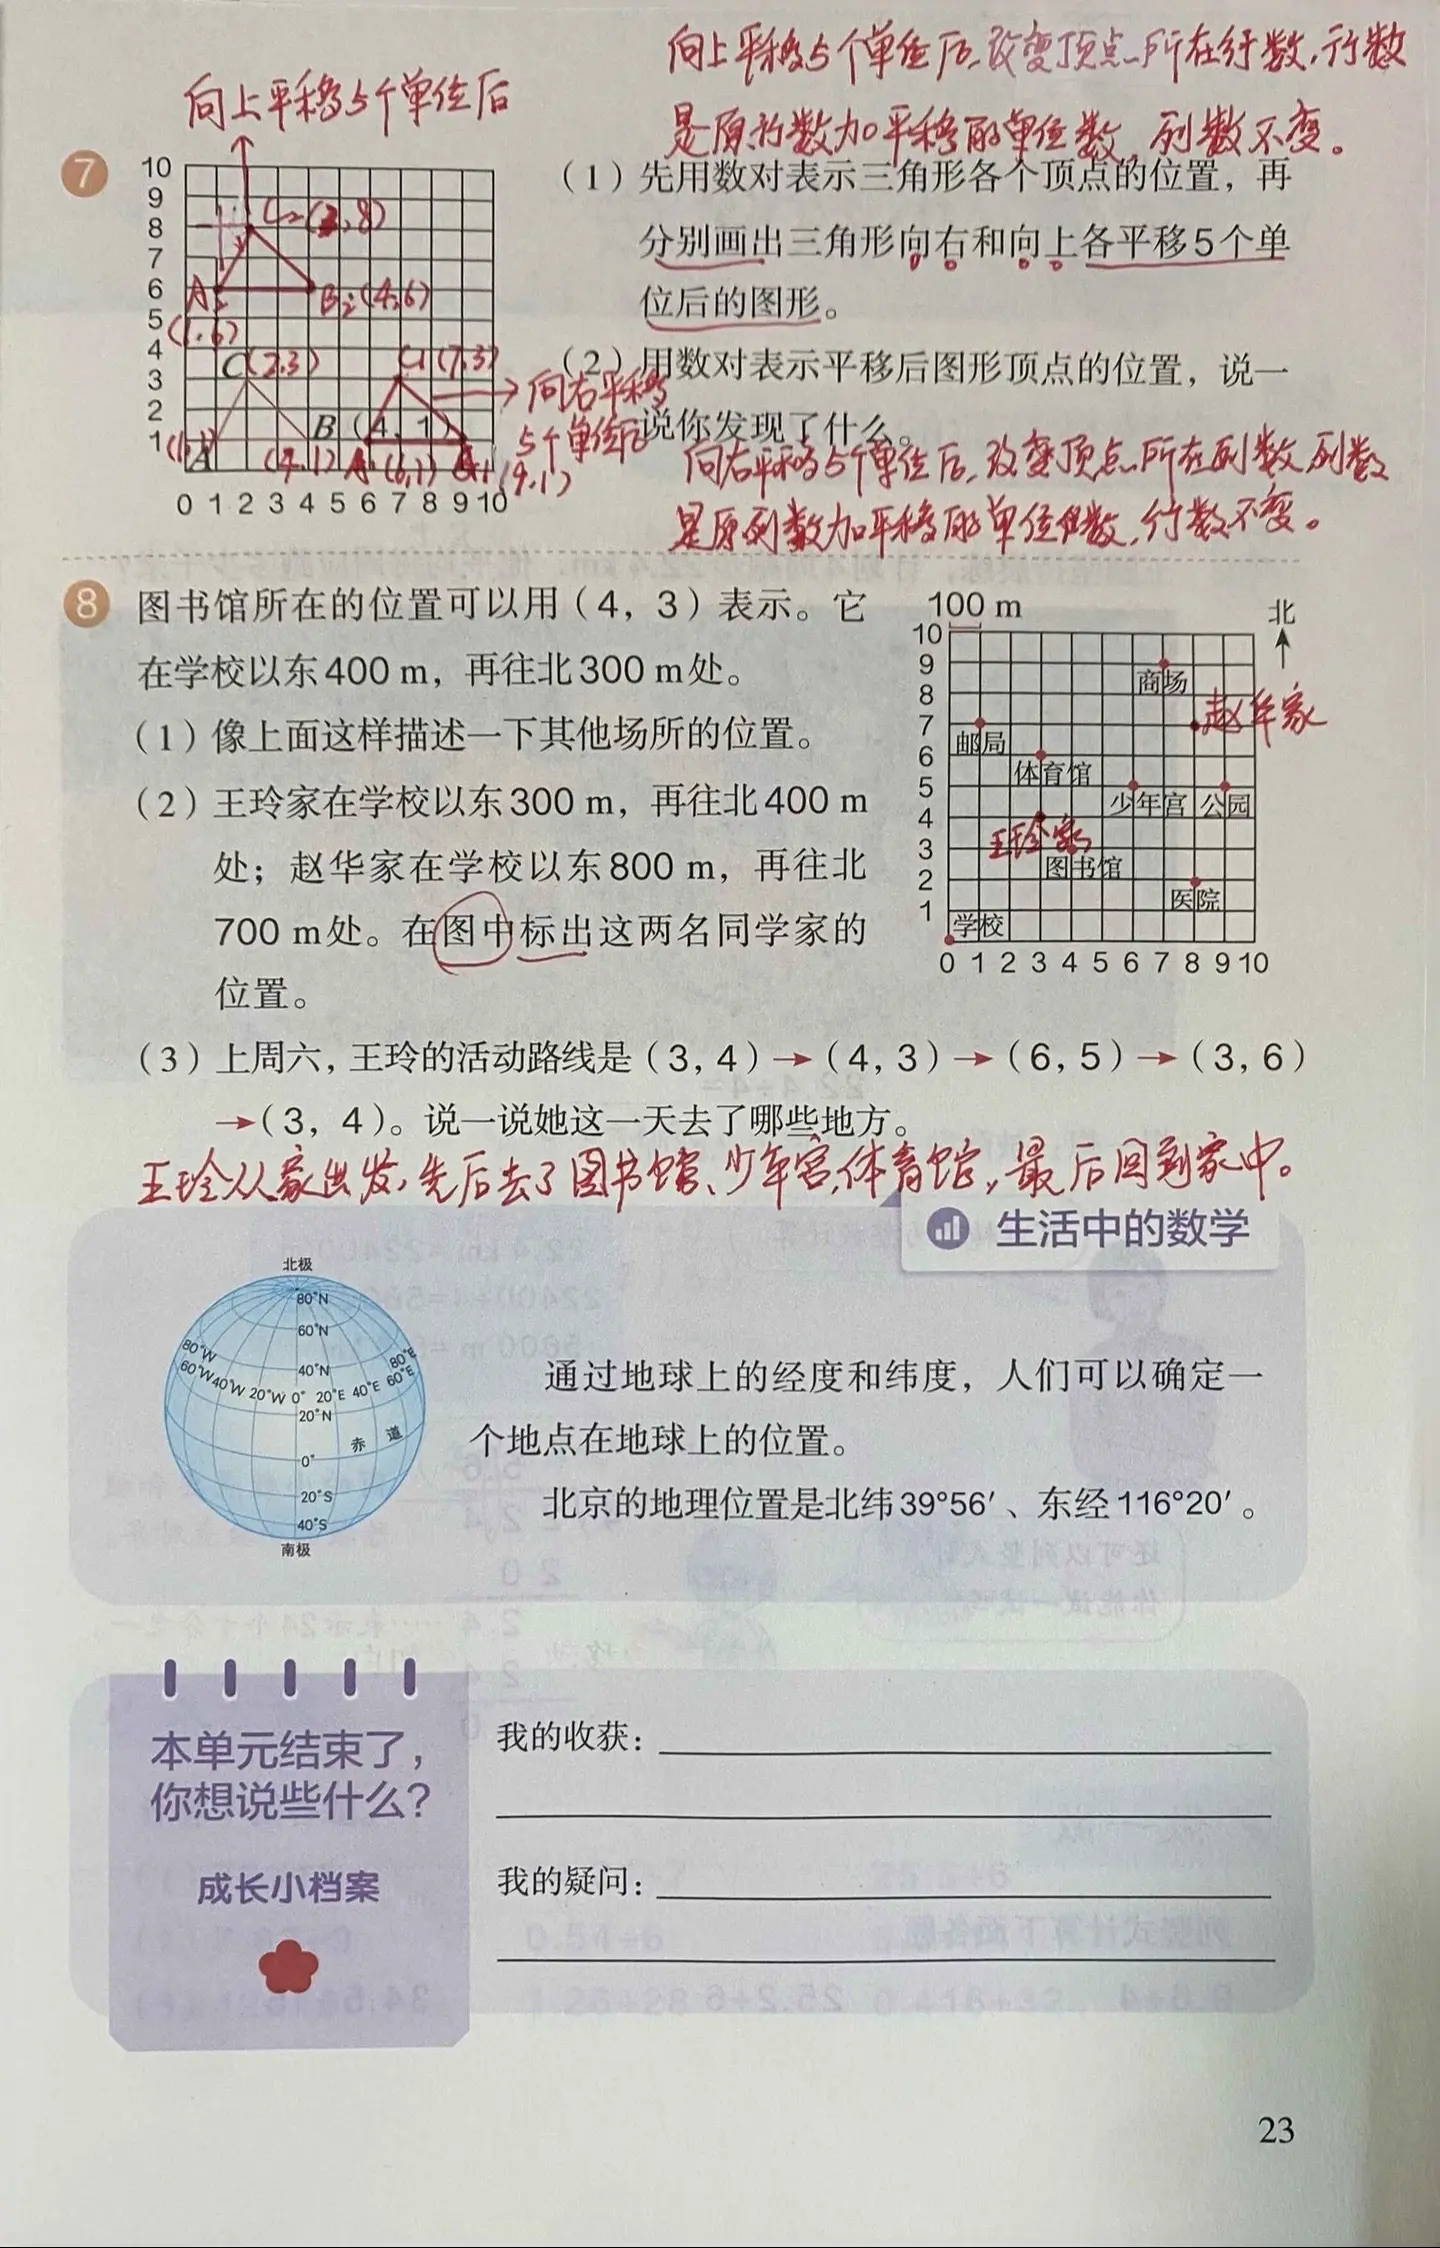 向上平移5个单位后,改变顶点所在行数,行数
是原行数加平移的单位数,列数不变。
向上平移5个单位后
7
10
9
8
7
6
5
4
3
2
1
0 1 2 3 4 5 6 7 8 9 10
C₂(2,8)
A₂
(1,6)
B₂(4,6)
C(2,3)
C1(7,3)
A
(1,1)
B(4,1)
(4,1)
(6,1)
(9,1)
向右平移
5个单位后
(1)先用数对表示三角形各个顶点的位置,再
分别画出三角形向右和向上各平移5个单
位后的图形。
(2)用数对表示平移后图形顶点的位置,说一
说你发现了什么。
向右平移5个单位后,改变顶点所在列数,列数
是原列数加平移的单位数,行数不变。
8
图书馆所在的位置可以用(4,3)表示。它
在学校以东400 m,再往北300 m处。
(1)像上面这样描述一下其他场所的位置。
(2)王玲家在学校以东300 m,再往北400 m
处;赵华家在学校以东800 m,再往北
700 m处。在图中标出这两名同学家的
位置。
100 m
北
10
9
8
7
6
5
4
3
2
1
0 1 2 3 4 5 6 7 8 9 10
商场
赵华家
邮局
体育馆
少年宫
公园
王玲家
图书馆
医院
学校
(3)上周六,王玲的活动路线是(3,4)→(4,3)→(6,5)→(3,6)
→(3,4)。说一说她这一天去了哪些地方。
王玲从家出发,先后去了图书馆、少年宫、体育馆,最后回到家中。
生活中的数学
北极
80°N
60°N
40°N
80°W
60°W 40°W 20°W 0° 20°E 40°E 60°E
80°E
20°N
赤 道
0°
20°S
40°S
南极
通过地球上的经度和纬度,人们可以确定一
个地点在地球上的位置。
北京的地理位置是北纬39°56′、东经116°20′。
本单元结束了,
你想说些什么?
成长小档案
我的收获:
我的疑问:
23